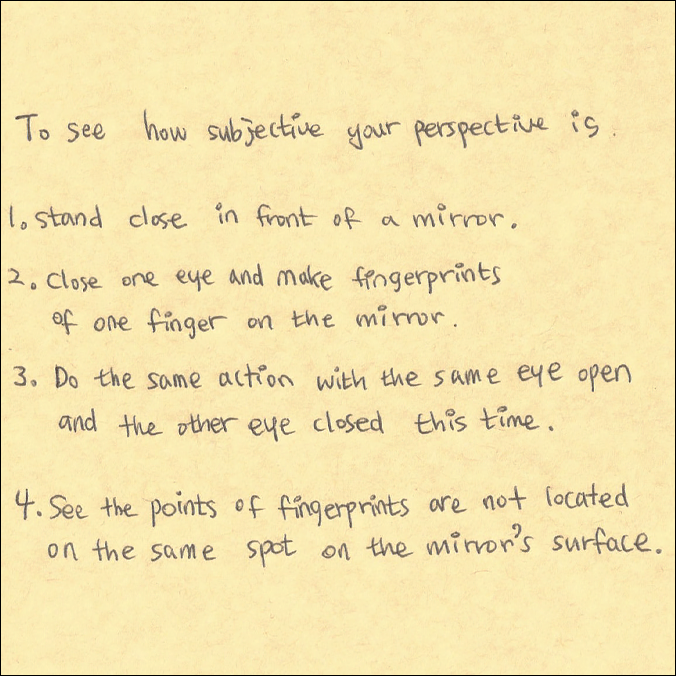 To see how subjective your perspective is.
1. Stand close in front of a mirror.
2. Close one eye and make fingerprints
of one finger on the mirror.
3. Do the same action with the same eye open
and the other eye closed this time.
4. See the points of fingerprints are not located
on the same spot on the mirror's surface.